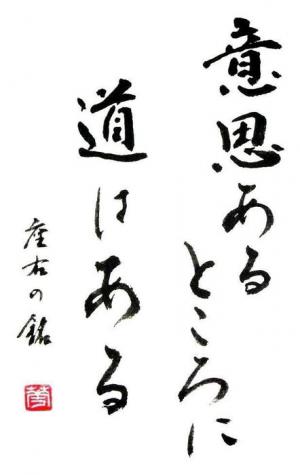 意思あるところに
道はある
座右の銘